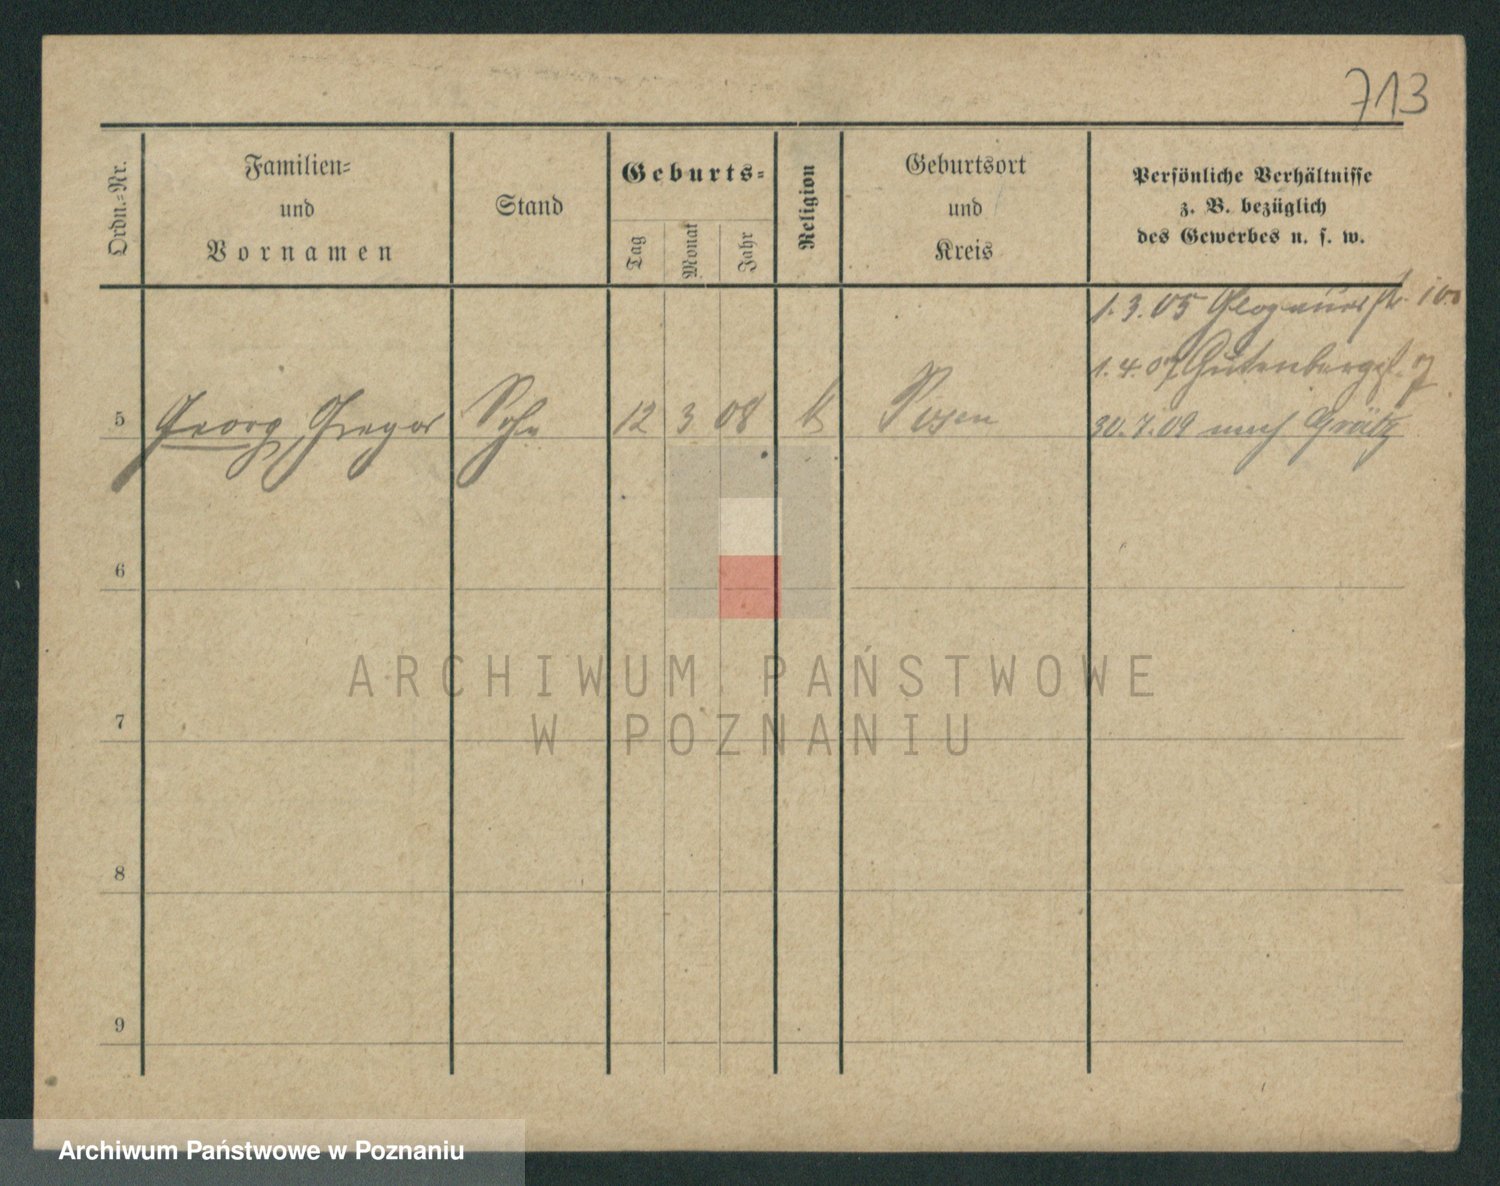 713
Ordn.-Nr.
Familien-
und
Vornamen
Stand
Geburts-
Tag
Monat
Jahr
Religion
Geburtsort
und
Kreis
Persönliche Verhältnisse
z. B. bezüglich
des Gewerbes u. s. w.
1.3.05 Glogauerstr. 100
1.4.07 Gutenbergst. 7
5 Georg, Gregor Sohn 12 3 08 k Posen 30.7.09 nach Grätz
6
7
8
9
ARCHIWUM PAŃSTWOWE
W POZNANIU
Archiwum Państwowe w Poznaniu